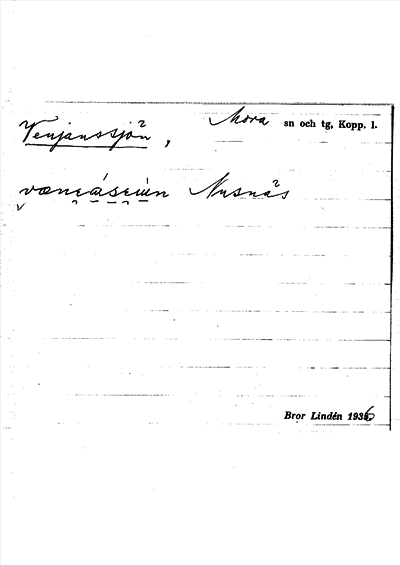 Venjanssjön, Mora sn och tg, Kopp. l.
Nusnäs
Bror Lindén 1936